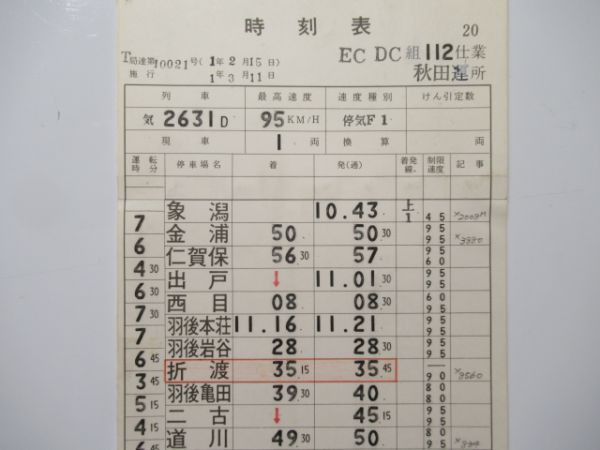 時刻表
20
T局達第10021号(1年2月15日)
施行 1年3月11日
EC DC組112仕業
秋田運所
列車 最高速度 速度種別 けん引定数
気2631D 95KM/H 停気F1
現車 1両 換算 両
運転時分 停車場名 着 発(通) 着発線 制限速度 記事
象潟 10.43. 上1 45
7
金浦 50. 50.30 95 95
6
仁賀保 56.30 57. 95 60
4.30
出戸 ↓ 11.01.30 95 95
6.30
西目 08. 08.30 60 95
7.30
羽後本荘 11.16. 11.21. 95 95
7
羽後岩谷 28. 28.30 95 95
6.45
折渡 35.15 35.45 — 90
3.45
羽後亀田 39.30 40. 80 80
5.15
二古 ↓ 45.15 95 95
4.15
道川 49.30 50. 80 95
6.45